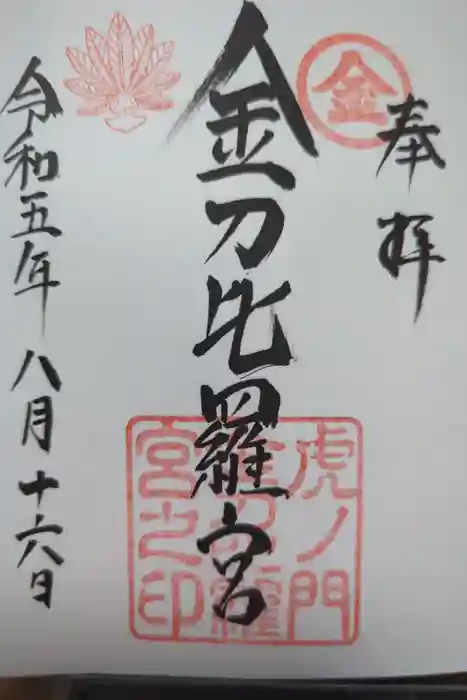 奉拝
金
金刀比羅宮
虎ノ門
金刀比羅
宮之印
令和五年八月十六日